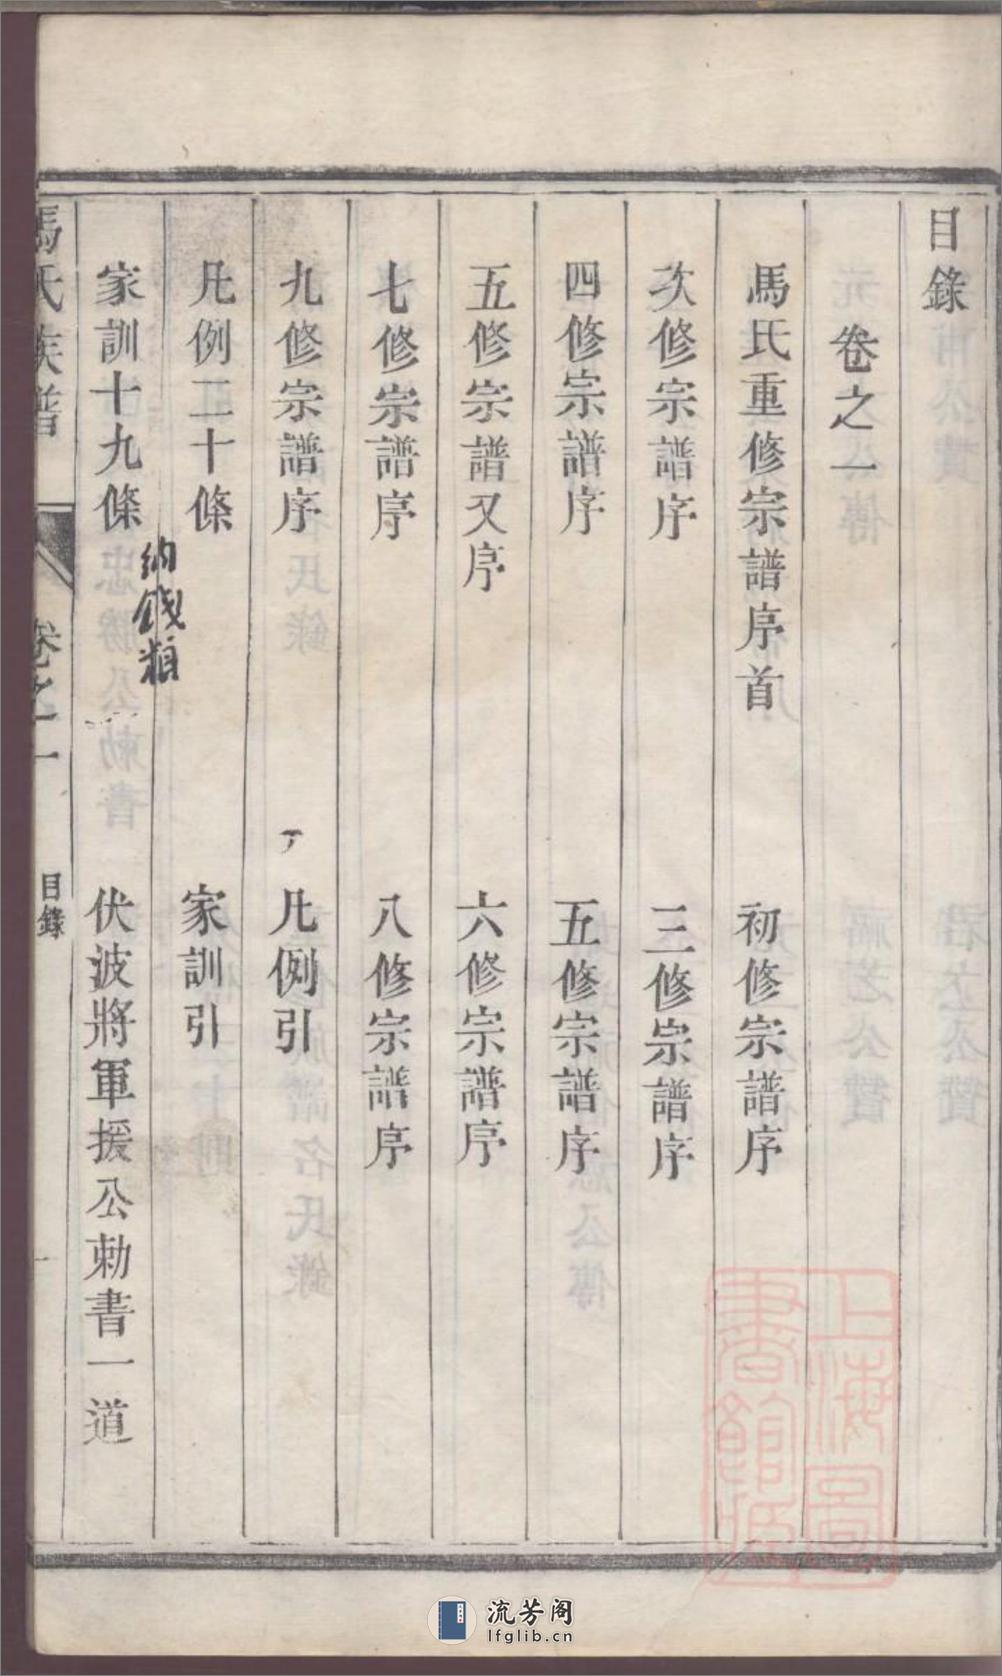 目錄
卷之一
馬氏重修宗譜序首　初修宗譜序
次修宗譜序　三修宗譜序
四修宗譜序　五修宗譜序
五修宗譜又序　六修宗譜序
七修宗譜序　八修宗譜序
九修宗譜序　凡例引
凡例二十條　家訓引
家訓十九條　伏波將軍援公勅書一道
馬氏族譜　卷之一　目錄　一
上海圖書館藏
流芳阁
lfglib.cn